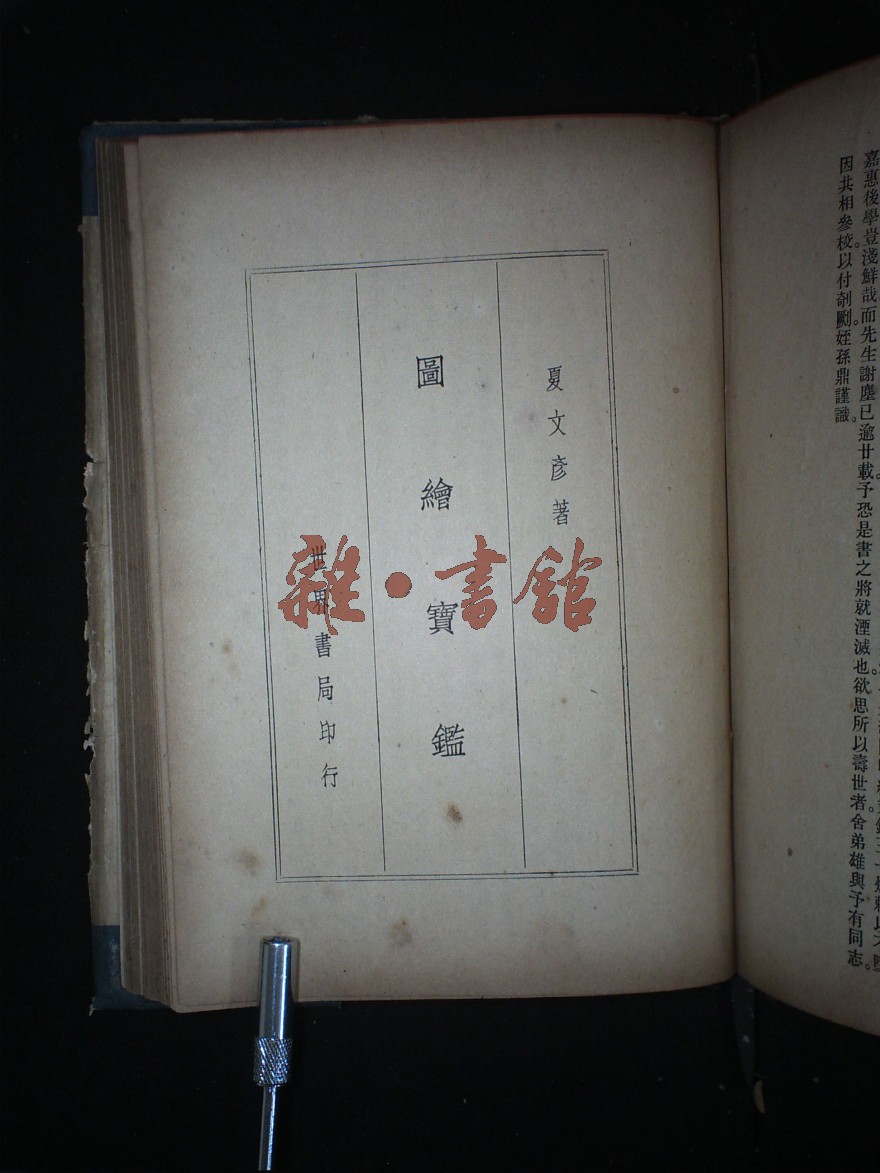 嘉惠後學豈淺鮮哉。而先生謝塵已逾廿載。予恐是書之將就湮滅也。欲思所以壽世者。舍弟雄與予有同志。
因共相參校。以付剞劂。姪孫鼎謹識。
夏文彥著
圖繪寶鑑
世界書局印行
雜·書館